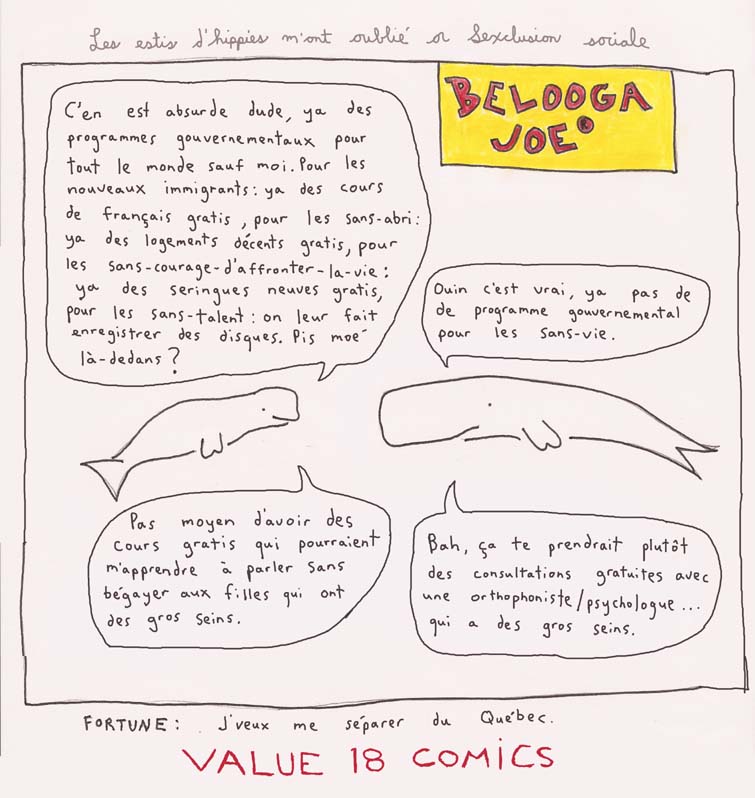 Les estis d'hippies m'ont oublié or Sexclusion sociale
BELOOGA
JOE®
C'en est absurde dude, ya des
programmes gouvernementaux pour
tout le monde sauf moi. Pour les
nouveaux immigrants: ya des cours
de français gratis, pour les sans-abri:
ya des logements décents gratis, pour
les sans-courage-d'affronter-la-vie:
ya des seringues neuves gratis,
pour les sans-talent: on leur fait
enregistrer des disques. Pis moé
là-dedans?
Ouin c'est vrai, ya pas de
de programme gouvernemental
pour les sans-vie.
Pas moyen d'avoir des
cours gratis qui pourraient
m'apprendre à parler sans
bégayer aux filles qui ont
des gros seins.
Bah, ça te prendrait plutôt
des consultations gratuites avec
une orthophoniste/psychologue...
qui a des gros seins.
FORTUNE: J'veux me séparer du Québec.
VALUE 18 COMICS